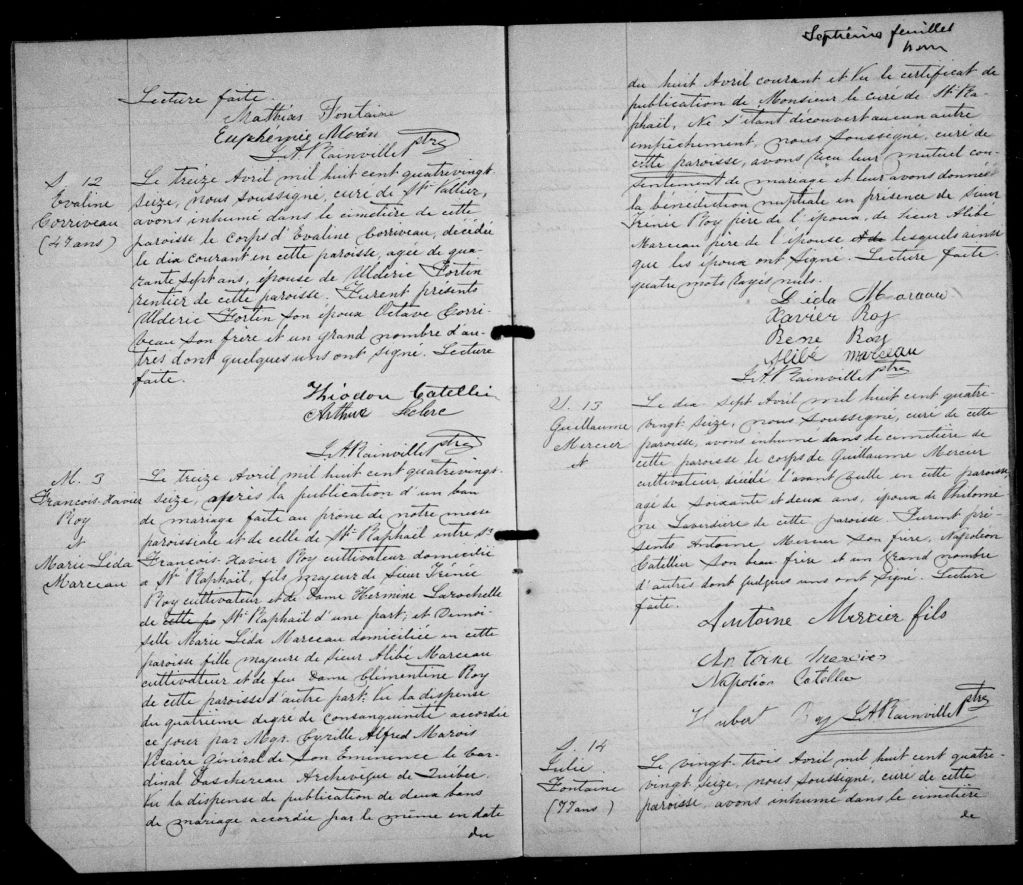 Lecture faite.
Mathias Fontaine
Euphémie Morin
L.A. Rainville Ptre
S. 12
Evaline
Corriveau
(47 ans)
Le treize Avril mil huit cent quatrevingt
seize, nous soussigné, curé de St. Vallier,
avons inhumé dans le cimetière de cette
paroisse le corps d'Evaline Corriveau, décédée
le dix courant en cette paroisse, agée de qua-
rante sept ans, épouse de Ulderic Fortin
rentier de cette paroisse. Furent présents
Ulderic Fortin son époux Octave Corri-
veau son frère et un grand nombre d'au-
tres dont quelques uns ont signé. Lecture
faite.
Arthur Leclerc
L.A. Rainville Ptre
M. 3
François-Xavier
Roy
et
Marie Lida
Marceau
Le treize Avril mil huit cent quatrevingt
seize, après la publication d'un ban
de mariage faite au prone de notre messe
paroissiale et de celle de St. Raphaël entre Sr.
François-Xavier Roy cultivateur domicilié
a St. Raphaël, fils majeur de Sieur Irénée
Roy cultivateur et de Dame Hermine Larochelle
de cette pa St. Raphaël d'une part; et Demoi-
selle Marie Lida Marceau domiciliée en cette
paroisse fille majeure de Sieur Alibé Marceau
cultivateur et de feu Dame Clementine Roy
de cette paroisse d'autre part. Vu la dispense
du quatrième degré de consanguinité accordée
ce jour par Mgr. Cyrille Alfred Marois
Vicaire Général de Son Eminence le Car-
dinal Taschereau Archevêque de Québec.
Vu la dispense de publication de deux bans
de mariage accordée par le même en date
du
Septième feuillet
du huit Avril courant et Vu le certificat de
publication de Monsieur le curé de St. Ra-
phaël, Ne s'étant découvert aucun autre
empêchement, nous soussigné, curé de
cette paroisse, avons reçu leur mutuel con-
sentement de mariage et leur avons donné
la bénédiction nuptiale en présence de Sieur
Irénée Roy père de l'époux, de Sieur Alibé
Marceau père de l'épouse et de lesquels ainsi
que les époux ont signé. Lecture faite.
quatre mots rayés nuls.
Lida Marceau
Xavier Roy
Rene Roy
Alibé Marceau
L.A. Rainville Ptre
S. 13
Guillaume
Mercier
Le dix sept Avril mil huit cent quatre-
vingt seize, nous soussigné, curé de cette
paroisse, avons inhumé dans le cimetière de
cette paroisse le corps de Guillaume Mercier
cultivateur, décédé l'avant veille en cette paroisse,
agé de soixante et deux ans, époux de Philome-
ne Laverdière de cette paroisse. Furent pré-
sents Antoine Mercier son frère, Napoléon
Catellier son beau frère et un grand nombre
d'autres dont quelques uns ont signé. Lecture
faite.
Antoine Mercier fils
Antoine Mercier
Napoléon Catellier
Hubert Roy L.A. Rainville Ptre
S. 14
Julie
Fontaine
(77 ans)
Le vingt trois Avril mil huit cent quatre-
vingt seize, nous soussigné, curé de cette
paroisse, avons inhumé dans le cimetière
de